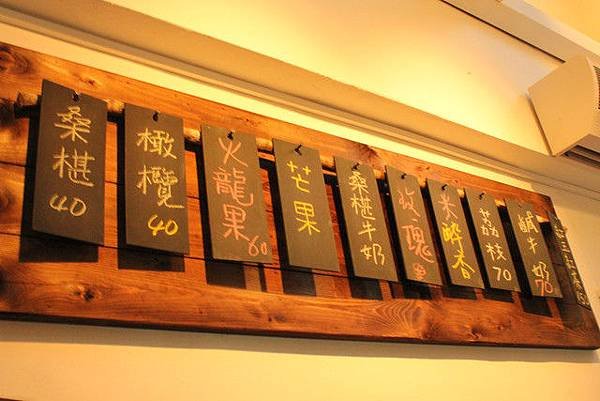 桑椹
40
橄欖
40
火龍果
60
芒果
桑椹牛奶
玫瑰
米醉香
荔枝
70
鹹牛奶
70